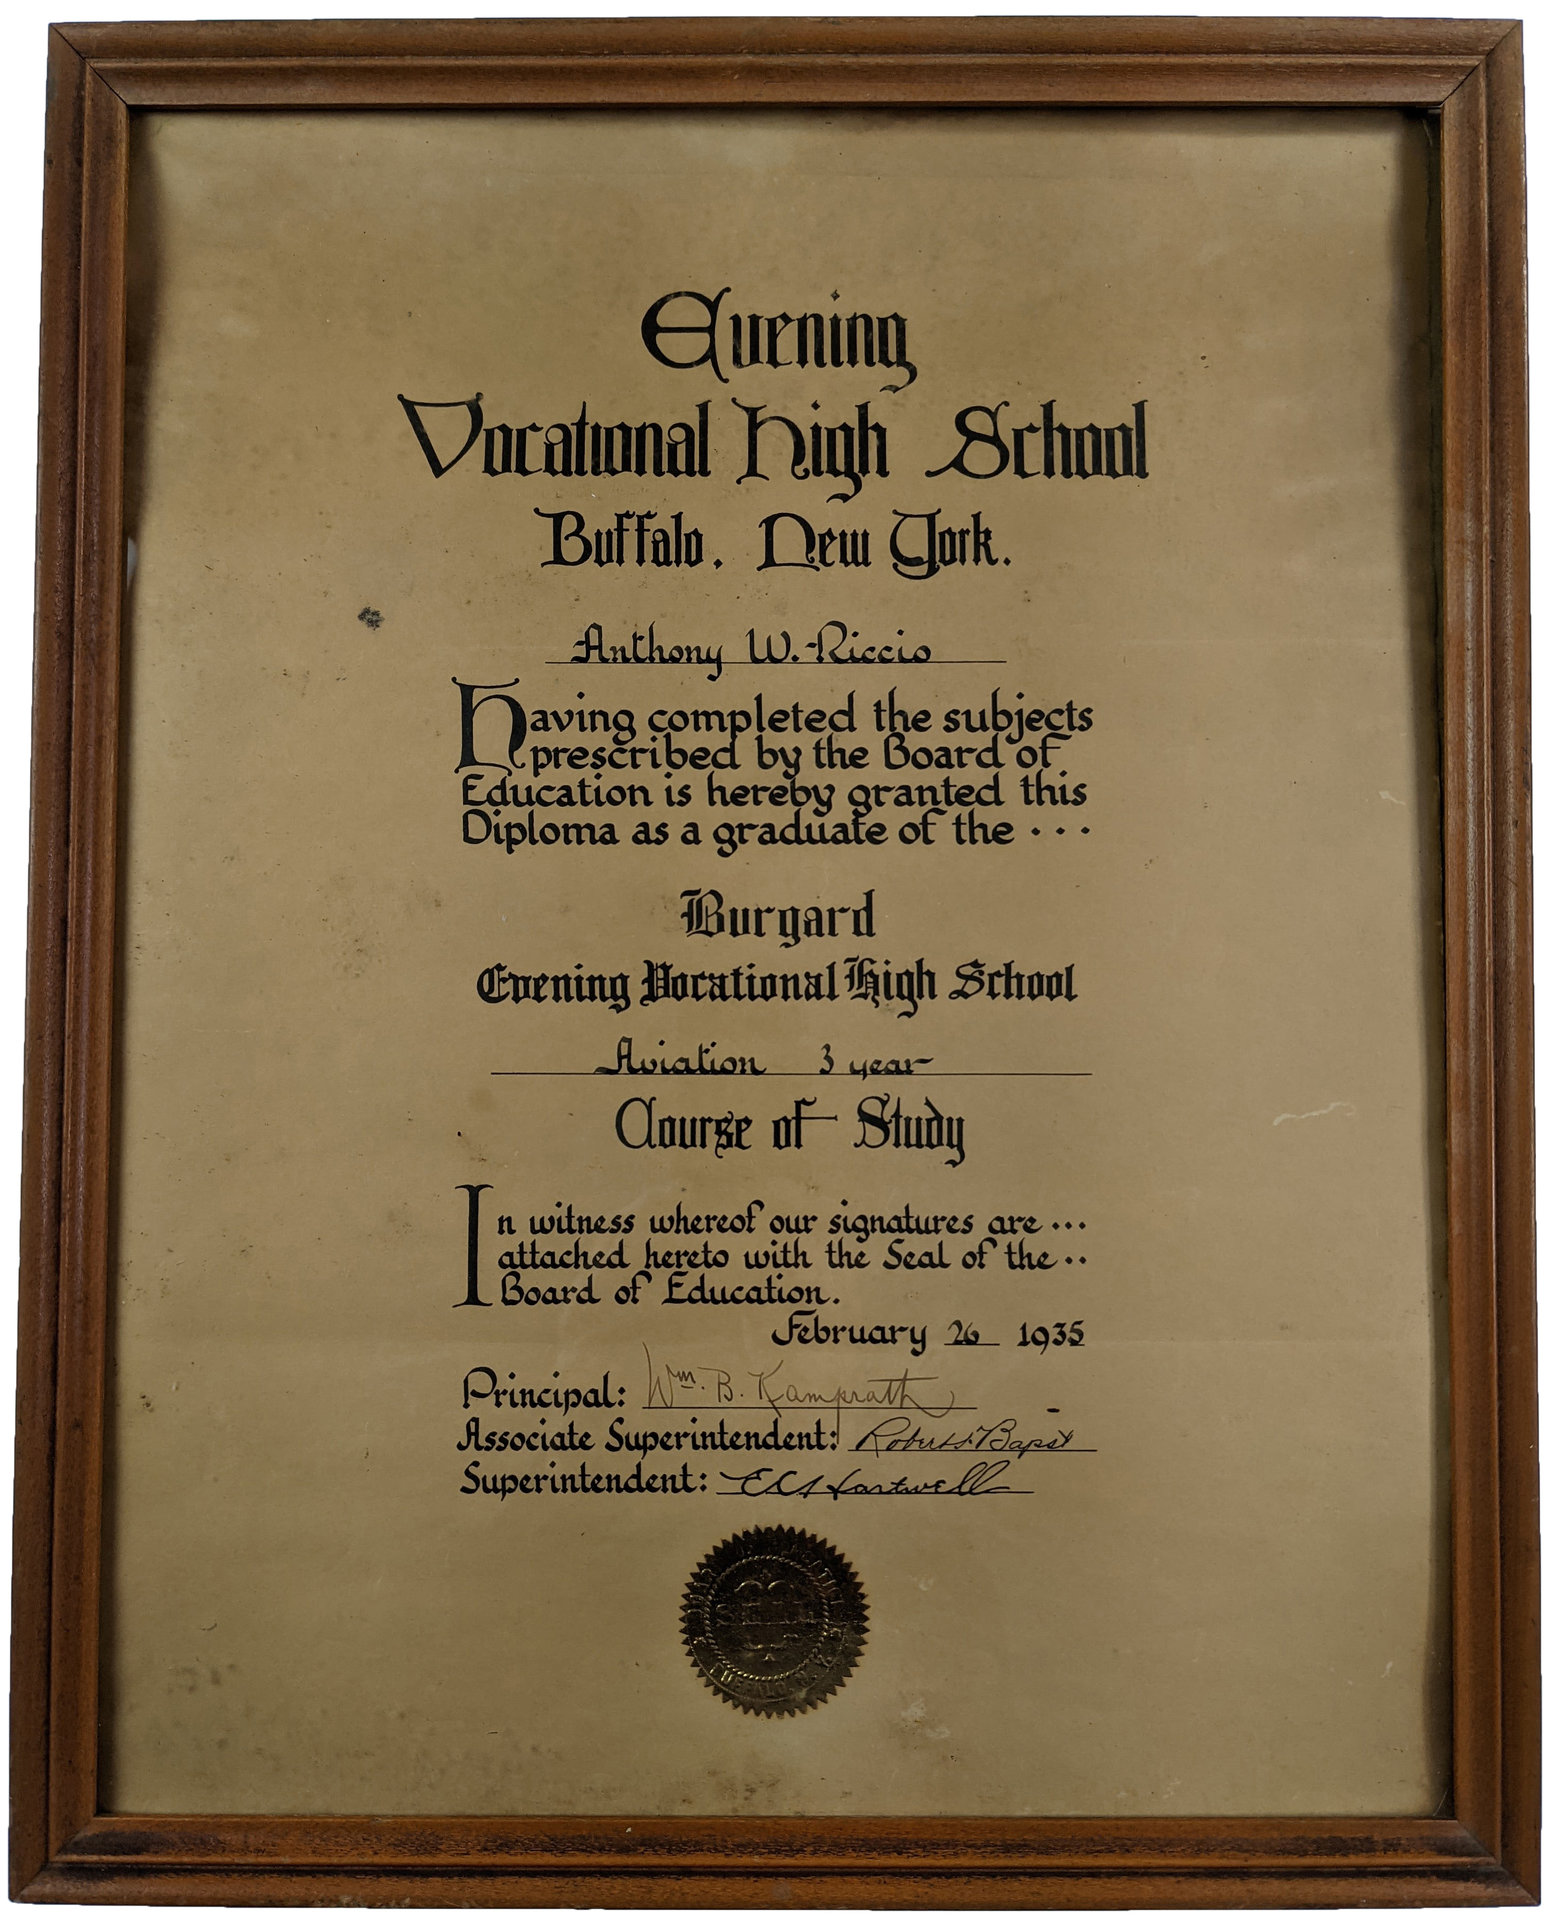 Evening
Vocational High School
Buffalo, New York.
Anthony W. Riccio
Having completed the subjects
prescribed by the Board of
Education is hereby granted this
Diploma as a graduate of the ...
Burgard
Evening Vocational High School
Aviation 3 year
Course of Study
In witness whereof our signatures are ...
attached hereto with the Seal of the ..
Board of Education.
February 26 1935
Principal: Wm. B. Kamprath
Associate Superintendent: Robert Bapst
Superintendent: E C Hartwell
BUFFALO, N.Y.